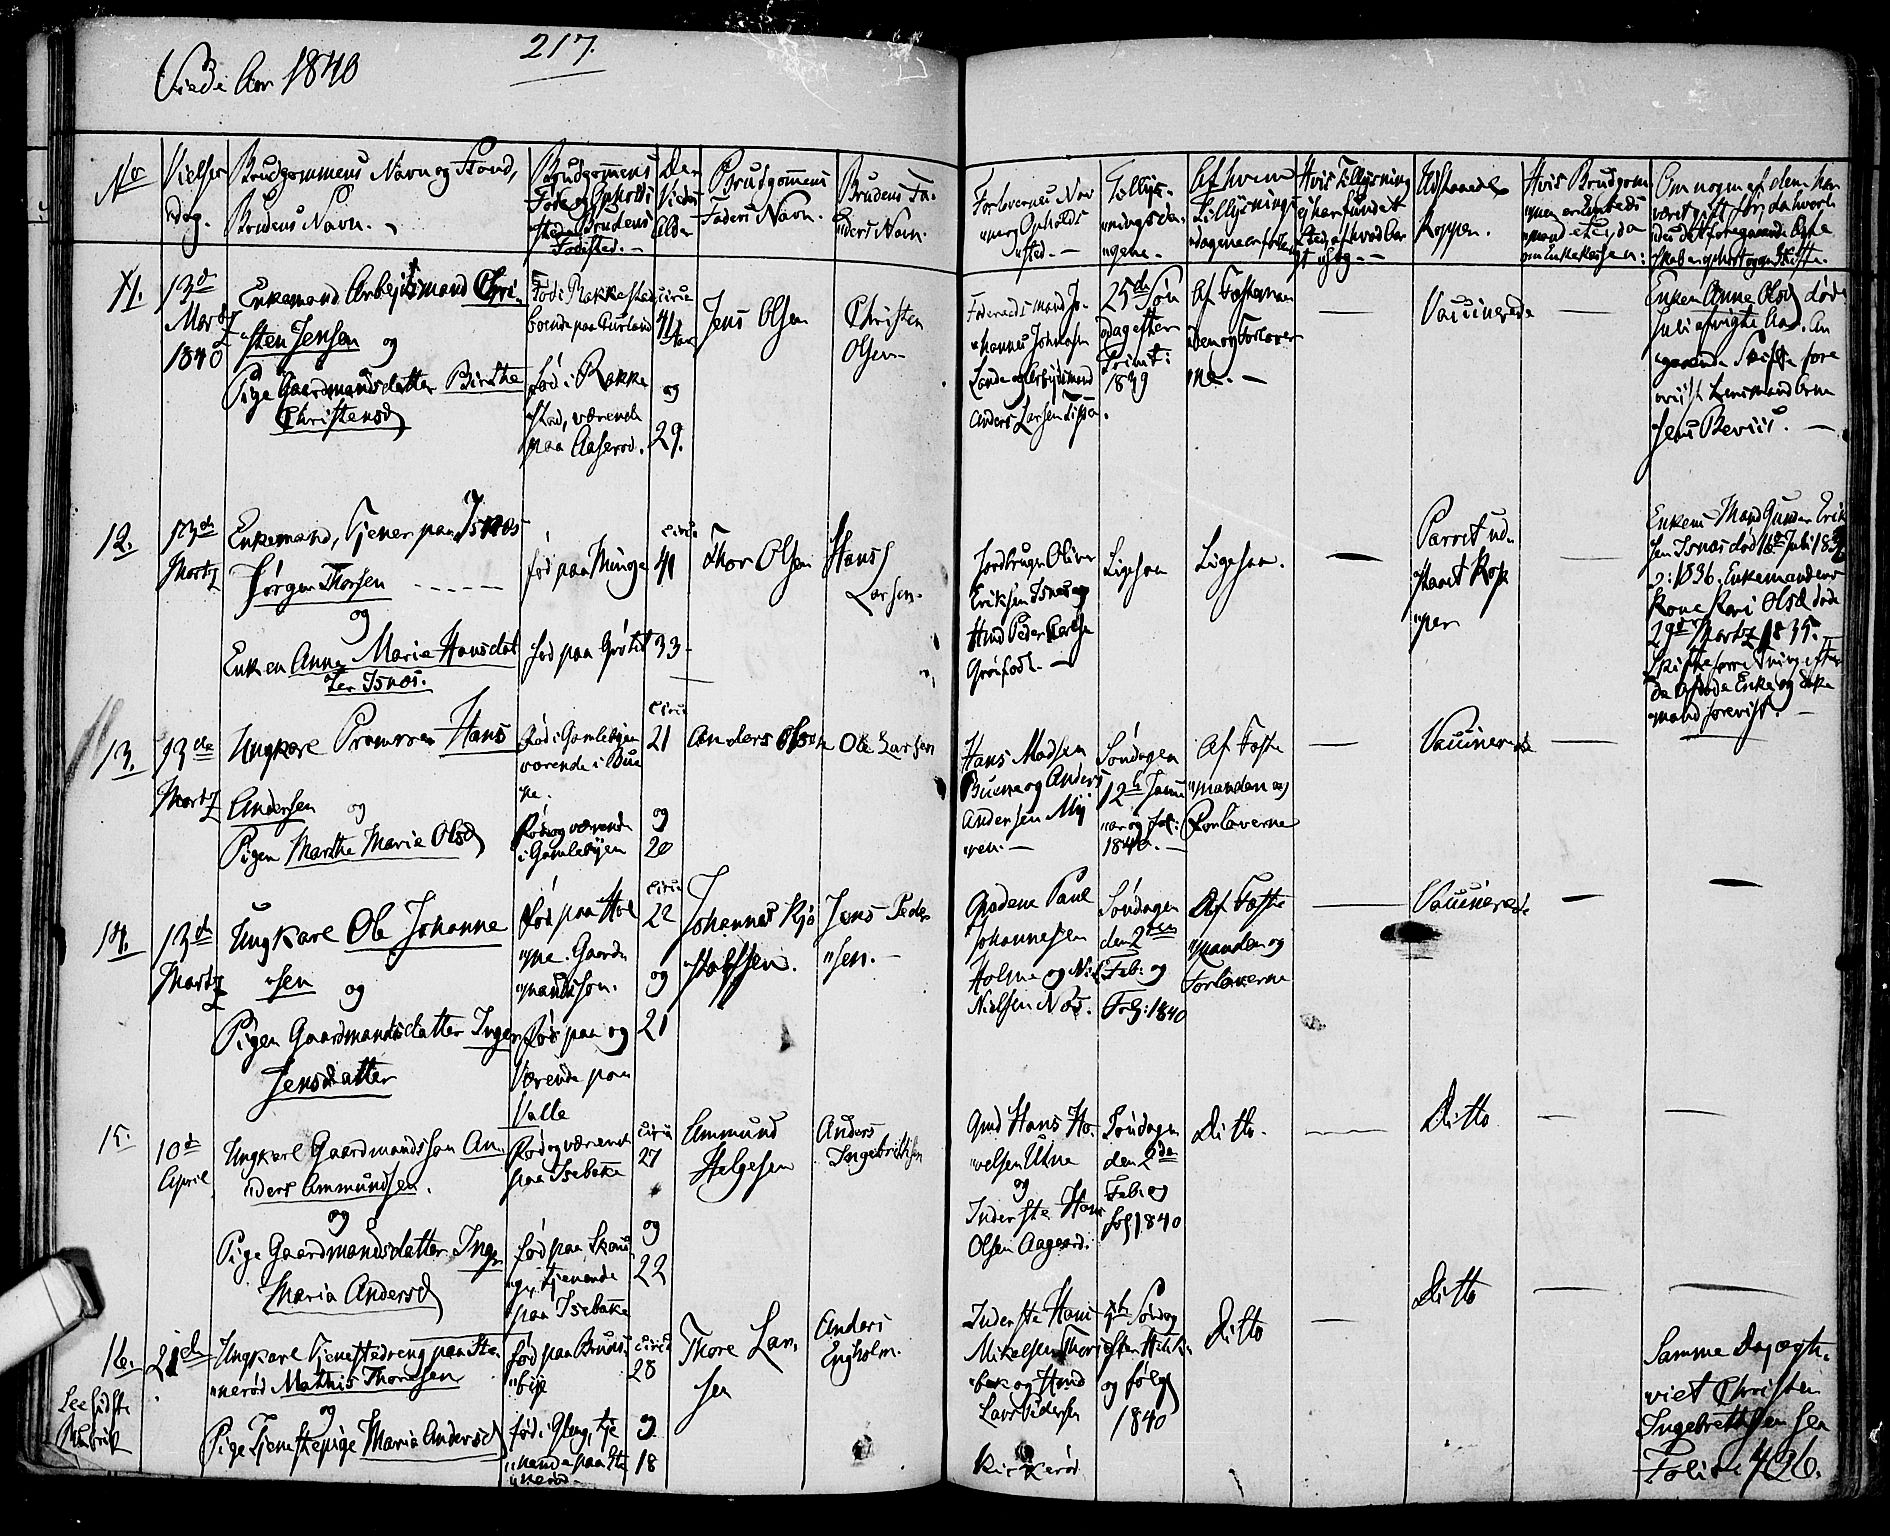 Viede Aar 1840
217.
No
Vielses
dag.
Brudgommens Navn og Stand,
Brudens Navn.
Brudgommens
Føde og Opholds
sted. Brudens
Fødested.
Deres
Alder
Brudgommens
Faders Navn.
Brudens Fa-
ders Navn.
Forlovernes Nav
og Opholds
sted.
Tillys-
ningsda-
gene.
Af hvem
Tillysnings
dagene er forlangt
Hvis Tillysning
ej har fundet
Sted, af hvad Aar
sag.
Udstandne
Kopper.
Hvis Brudgom
men er Embeds
mand etc., da
om Enkekassen:
Om nogen af dem har
været gift før, da hvorle
des det foregaaende Ægte
skab er ophørt og om Skifte.
11.
13de
Martz
1840
Enkemand Arbejdsmand Chri
sten Jensen og
Pige Gaardmandsdatter Birthe
Christensd
Født i Rakkestad
boende paa Gurland
født i Rakke
stad, værende
paa Aaserød.
circa
44
og
29.
Jens Olsen
Christen
Olsen
Føderaadsmand Jo-
hannes Johnsen
Lande og Arbejdsmand
Anders Larsen
25de Søn
dag efter
Trinit:
1839
Af Fæsteman
den og Forlover
ne.
Vaccinerede
Enken Anne Olsd døde
Juli afvigte Aar. An
gaaende Skifte fore
viist Lensmand Arne
sens Beviis.
12.
13de
Martz
Enkemand, Tjener paa Isnæs
Jørgen Thorsen
og
Enken Anne Marie Hansdat
ter Isnæs.
født paa Minge
født paa Grøtet
circa
41
33
Thor Olsen
Hans
Larsen.
Jordbruger Oliver
Eriksen Isnæs og
Hmd Peder
Ligesaa
Ligesaa.
Baaret ud-
staaet Kop
per
Enkens Mand Gunder Erik
sen Isnæs død 16de Juli 1836
ɔ: 1836. Enkemandens
Kone Kari Olsd døde
29de Martz 1835.
Skifteforretning efter
de afdøde Enke og Enke
mand forevist.
13.
13de
Martz
Ungkarl Hans
Andersen og
Pigen Marthe Marie Olsd
Født i Gamlebyen
værende i Bue
ne.
Født og værende
i Gamlebyen
circa
21
og
20
Anders Olsen
Ole Larsen
Hans Madsen
Buene og Anders
Andersen My
ren.
Søndagen
12te Janu
ar og føl:
1840.
Af Fæste
manden og
Forloverne
Vaccinerede
14.
13de
Martz
Ungkarl Ole Johanne
sen og
Pigen Gaardmandsdatter Inger
Jensdatter
Født paa Hol
me. Gaard
mandssøn.
Født paa og
værende paa
Valle
circa
22
og
21
Johannes Kjø
stolfsen.
Jens Peder
sen.
Gaardm Paul
Johannesen
Holme og Niels
Nielsen Næs.
Søndagen
den 2den
Feb: og
Følg: 1840
Af Fæste
manden og
Forloverne
Vaccinerede
15.
10de
April
Ungkarl Gaardmandssøn An-
ders Ammundsen.
og
Pige Gaardmandsdatter Inger
Maria Andersd
Født og værende
paa Isebakke
født paa Skou
tjenende
paa Isebakke
circa
27
og
22
Ammund
Helgesen
Anders
Ingebrethsen
Gmd Hans Ho-
velsen Utne
og
Inderste Hans
Olsen Aagaard.
Søndagen
den 2de
Feb: og
føl 1840
Ditto.
Ditto
16.
21de
See sidste
Rubrik
Ungkarl Tjenestedreng paa Ste-
nerød Mathis Thoresen
og
Pige Tjenestepige Maria Andersd
født paa Bruns
bye
født i Gleng, tje
nende paa Ste
nerød
circa
28
og
18
Thore Lar-
sen
Anders
Engholm.
Inderste Hans
Mikelsen
og Hmd
Lars Pedersen
Kirkerød
Søndag
efter
og følg
1840
Ditto
Ditto
Samme Dag ægte-
viet Christen
Ingebrethsen see
Folio 426.